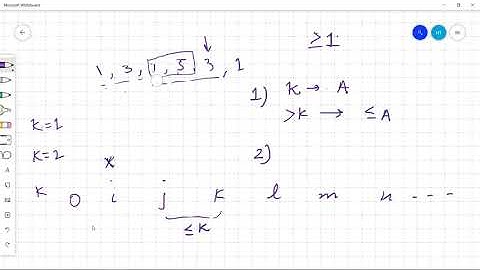 Microsoft Whiteboard
≥1.
1, 3, 1, 5, 3, 1
1) K → A
>K → ≤A
K=1
K=2
2)
K 0 i j K l m n ---
≤K